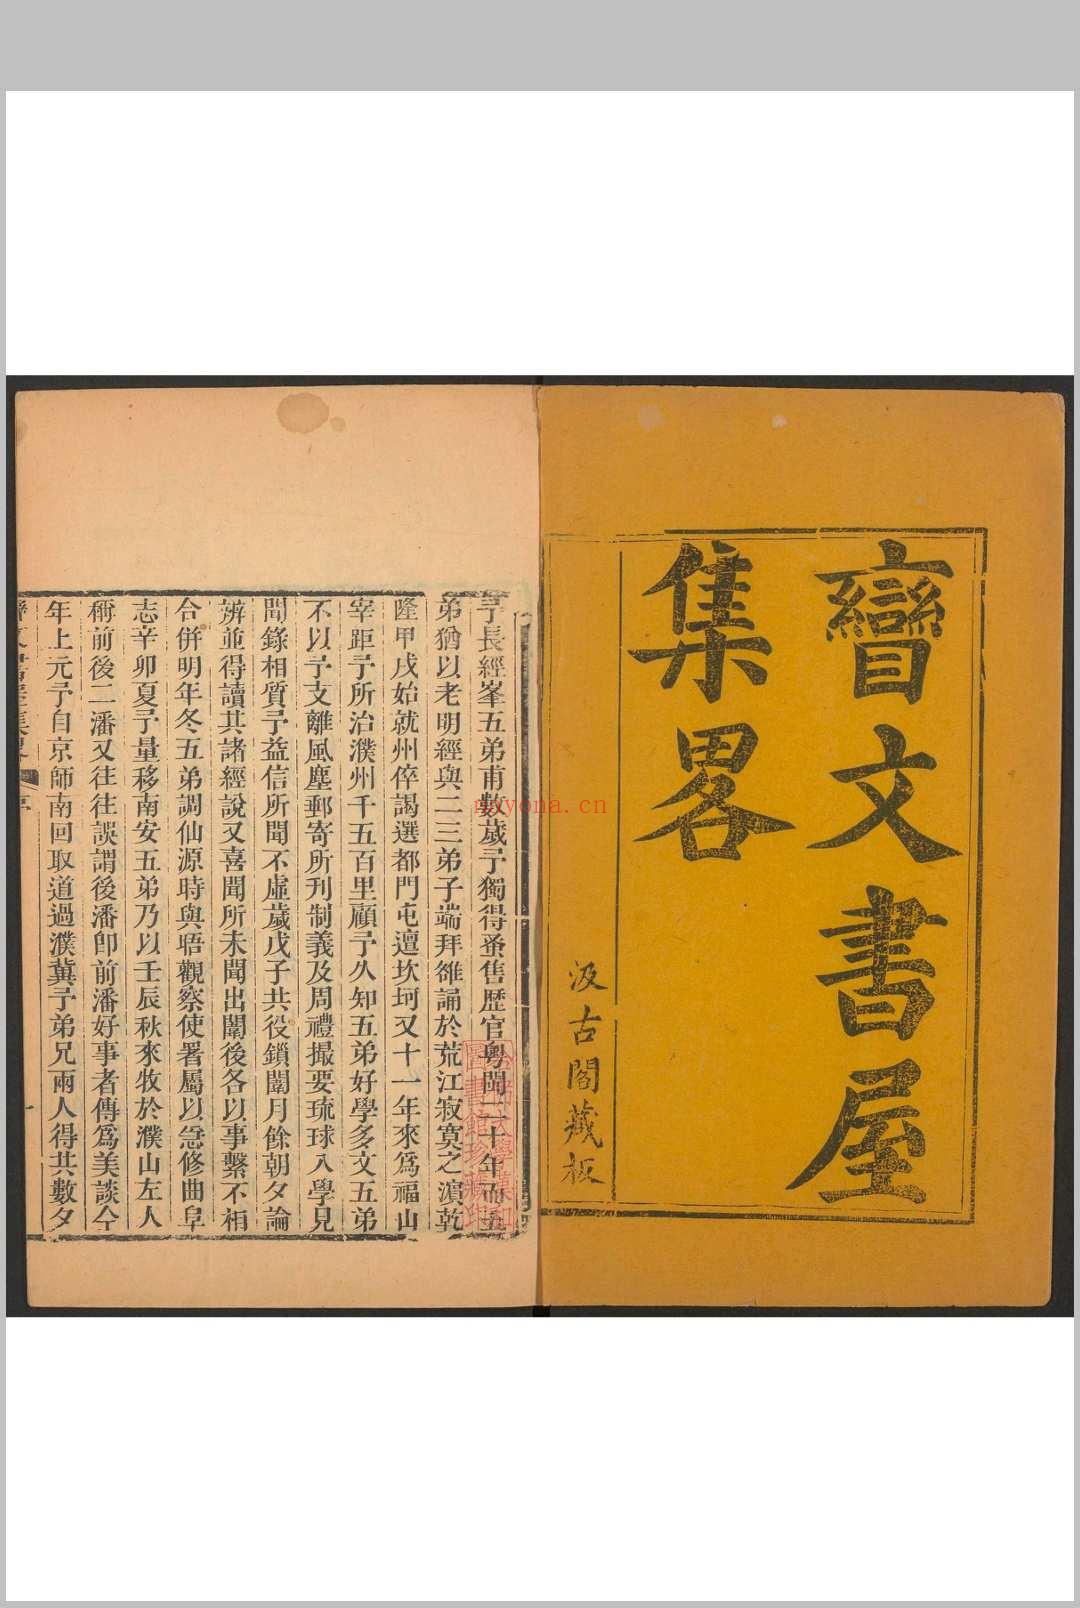 䜌文書屋
集畧
汲古閣藏板
予長經峯五弟甫數歲予獨得蚤售歷官粤閩二十年而五
弟猶以老明經與二三弟子端拜雒誦於荒江寂寞之濵乾
隆甲戌始就州倅謁選都門屯邅坎坷又十一年來爲福山
宰距予所治濮州千五百里顧予久知五弟好學多文五弟
不以予支離風塵郵寄所刋制義及周禮撮要琉球入學見
聞錄相質予益信所聞不虛歲戊子共役鎖闈月餘朝夕論
辨並得讀其諸經說又喜聞所未聞出闈後各以事繫不禍
合倂明年冬五弟調仙源時與晤觀察使署屬以急修曲阜
志辛卯夏予量移南安五弟乃以壬辰秋來牧於濮山左人
稱前後二潘又往往誤謂後潘卽前潘好事者傳爲美談今
年上元予自京師南回取道過濮冀予弟兄兩人得共數夕
序
一
nayona.cn